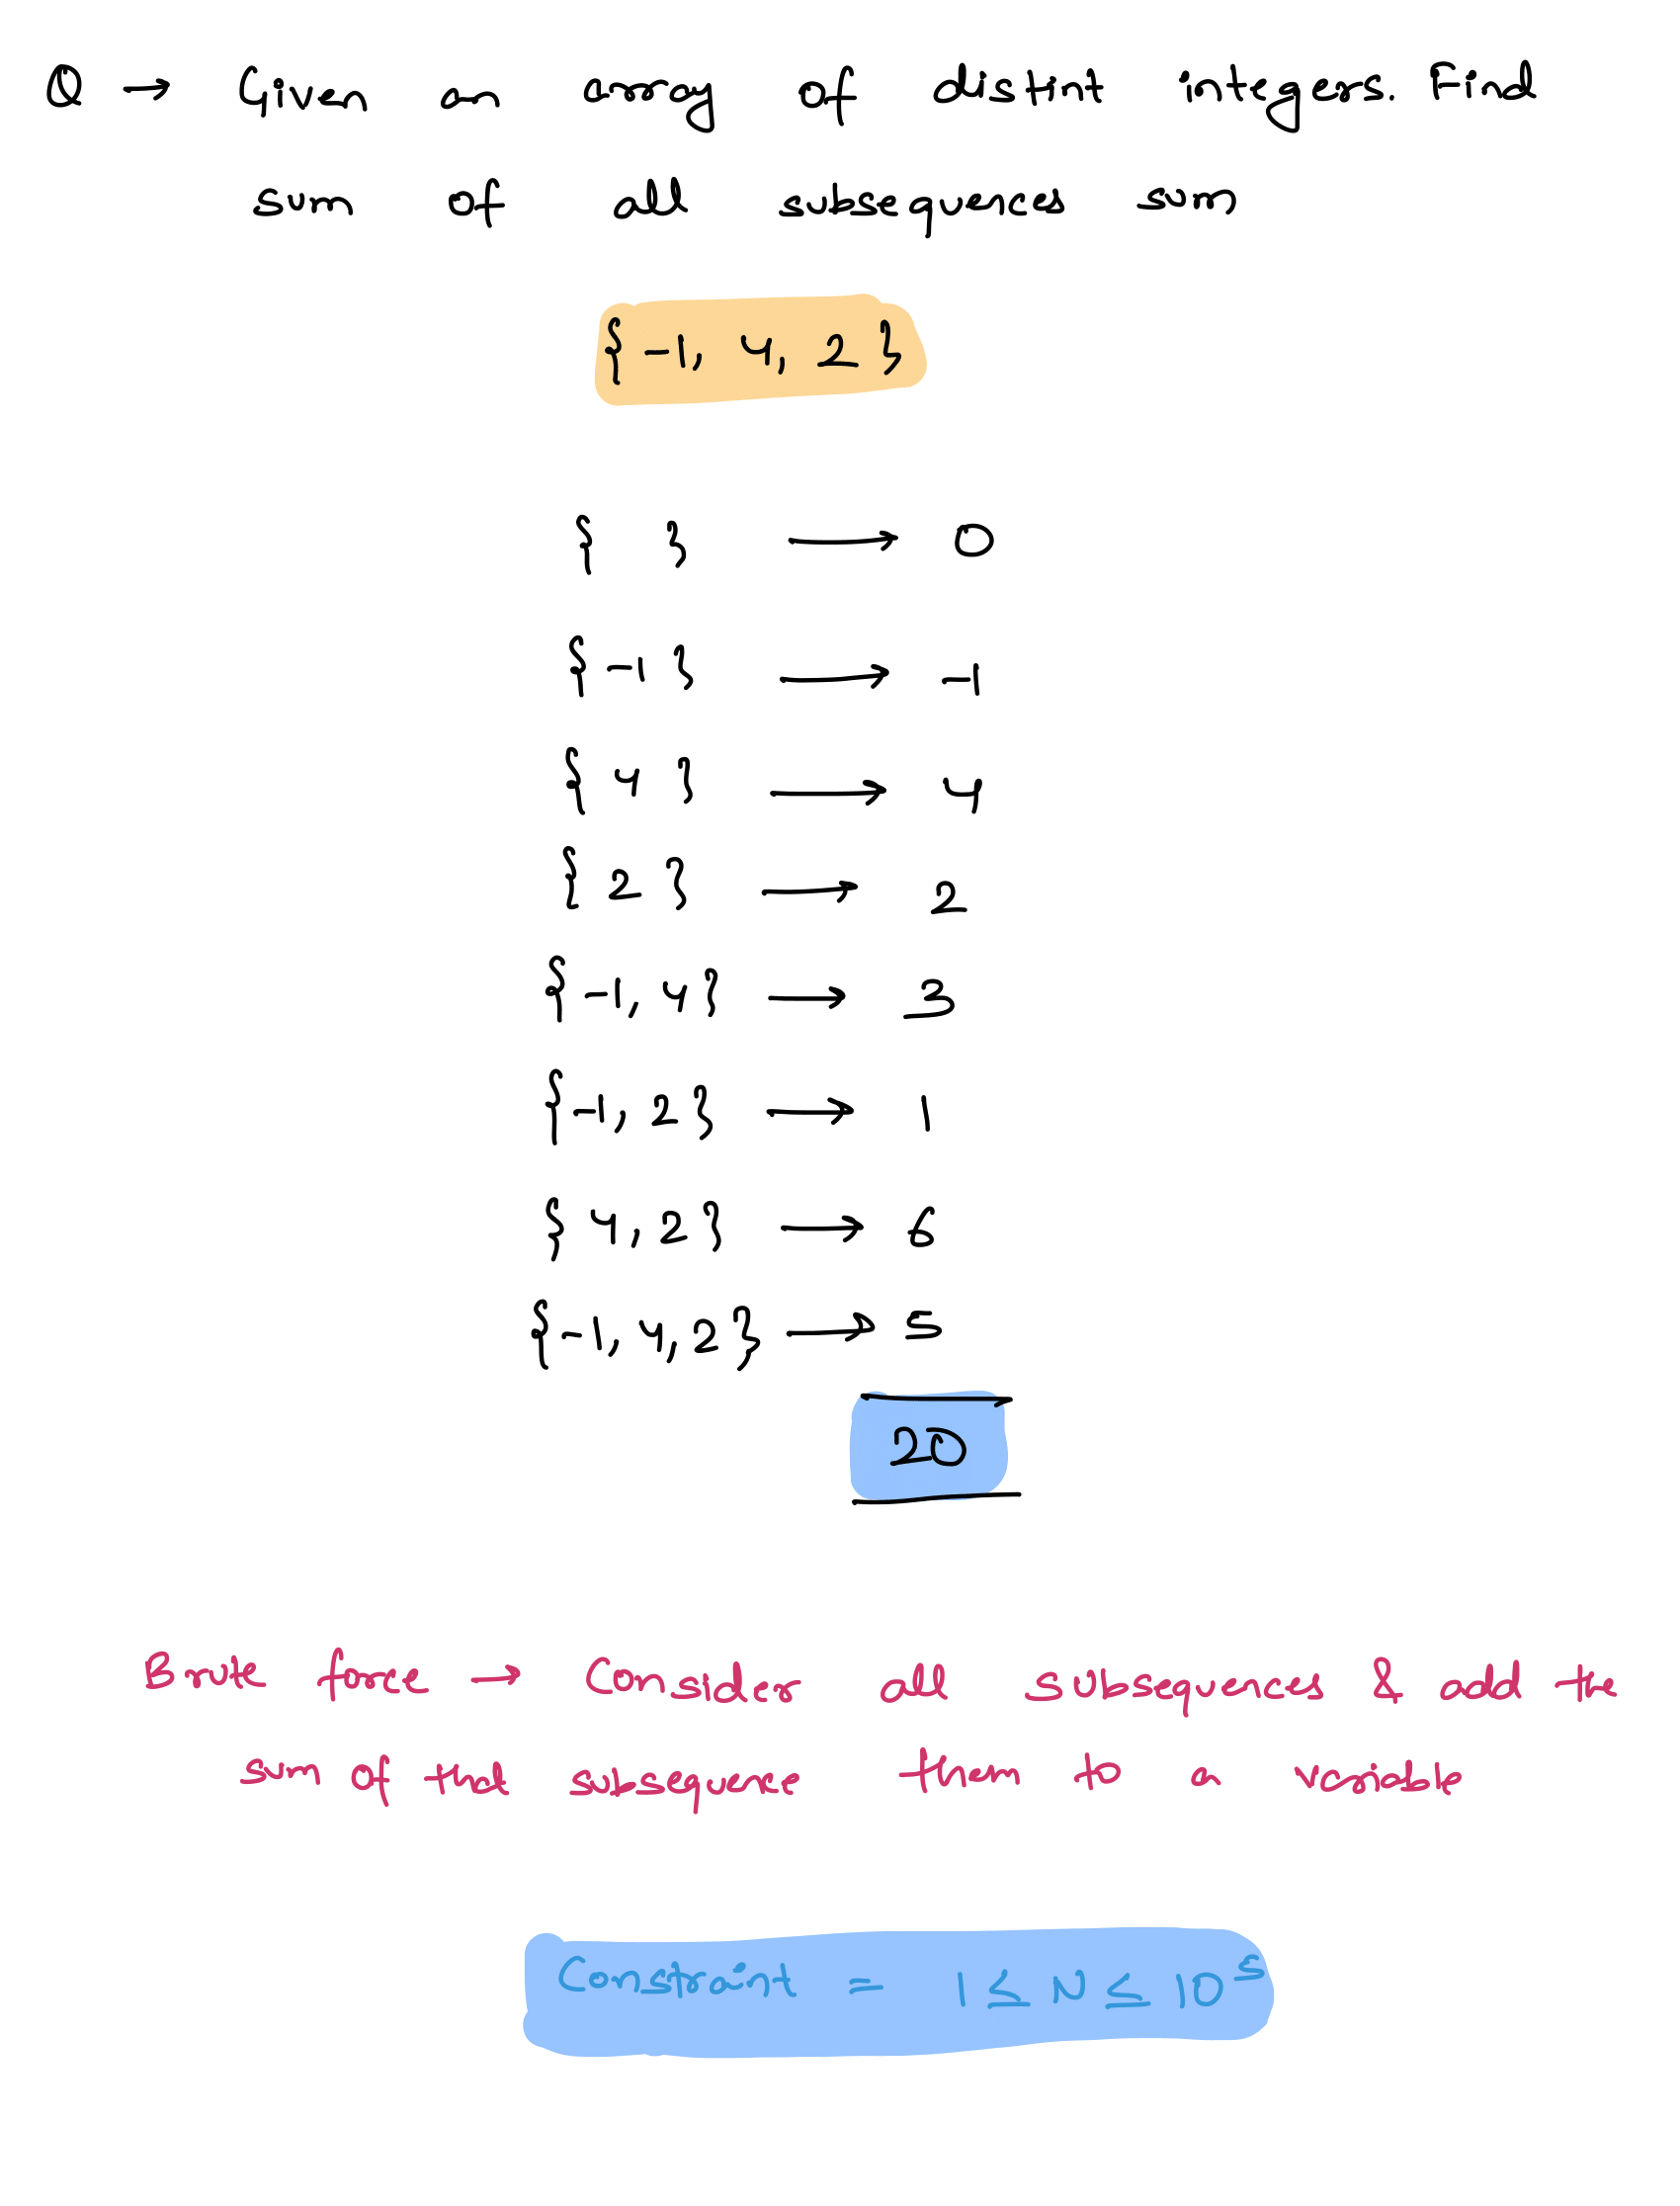 Q → Given an array of distint integers. Find
sum of all subsequences sum
{ -1, 4, 2 }
{ } → 0
{ -1 } → -1
{ 4 } → 4
{ 2 } → 2
{ -1, 4 } → 3
{ -1, 2 } → 1
{ 4, 2 } → 6
{ -1, 4, 2 } → 5
20
Brute force → Consider all subsequences & add the
sum of that subsequence them to a variable
Constraint = 1 ≤ N ≤ 10⁵